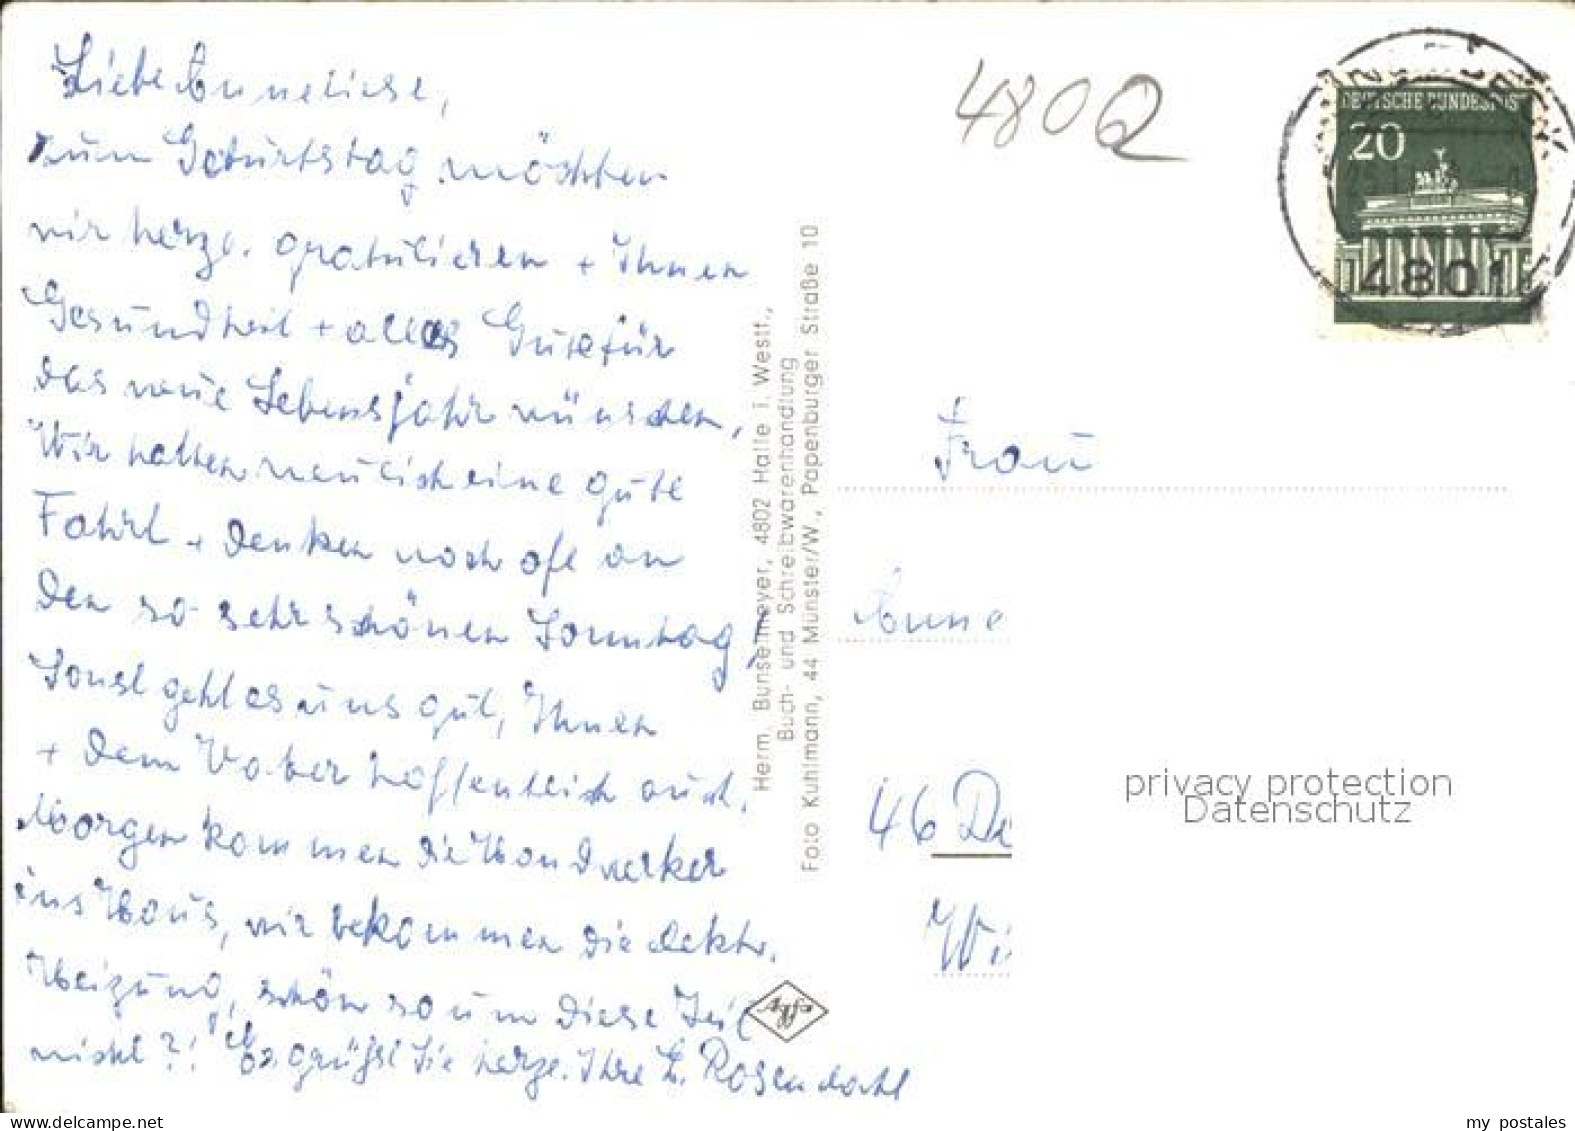 Liebe Anneliese,
zum Geburtstag möchten
wir herzl. gratulieren + Ihnen
Gesundheit + alles Gute für
das neue Lebensjahr wünschen,
Wir hatten neulich eine gute
Fahrt + denken noch oft an
den so sehr schönen Sonntag,
Sonst geht es uns gut, Ihnen
+ dem Vater hoffentlich auch.
Morgen kommen die Handwerker
ins Haus, wir bekommen die elektr.
Heizung, schön so um diese Zeit
nicht? ! Es grüßt Sie herzl. Ihre L. Rosendahl
Herm. Bunselmeyer, 4802 Halle i. Westf.,
Buch- und Schreibwarenhandlung
Foto Kuhlmann, 44 Münster/W., Papenburger Straße 10
480
DEUTSCHE BUNDESPOST
20
4801
Frau
Anne
46 Do
Wi
privacy protection
Datenschutz
my postales